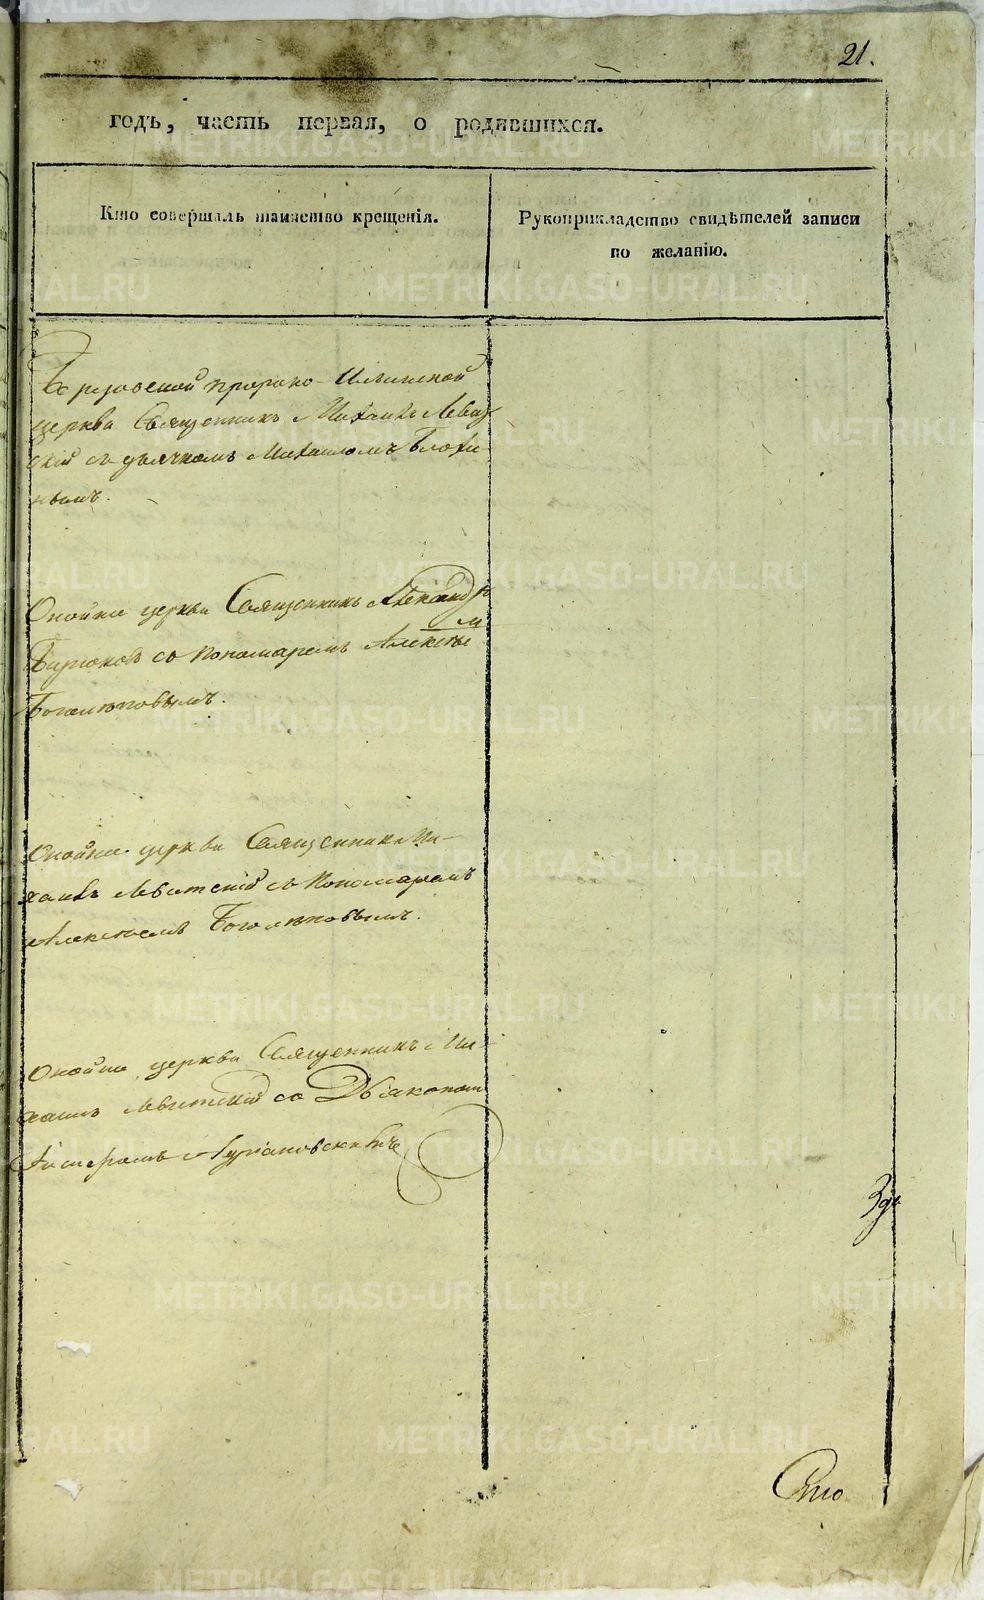 21.
годъ, часть первая, о родившихся.
Кто совершалъ таинство крещенія.
Рукоприкладство свидѣтелей записи
по желанію.
Березовской Пророко-Ильинской
церкви Священникъ Михаилъ Левит
скій съ дьячкомъ Михаиломъ Блохи-
нымъ.
Оной же церкви Священникъ Александръ
Бирюковъ со пономаремъ Алексѣем
Боголѣповымъ.
Оной же церкви Священникъ Ми-
хаилъ Левитскій съ пономаремъ
Алексѣемъ Боголѣповымъ.
Оной же церкви Священникъ Ми-
хаилъ Левитскій со Діакономъ
Сто
METRIKI.GASO-URAL.RU